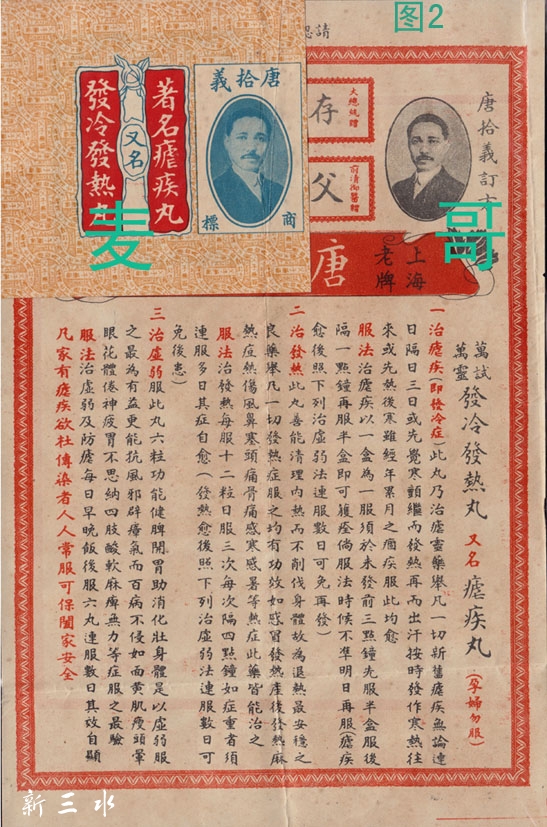 图2
請認
唐拾義
商標
著名瘧疾丸
又名
發冷發熱丸
唐拾義訂
大總統贈
存
前清御醫贈
父
上海
老牌
唐
麦哥
萬試
萬靈
發冷發熱丸 又名瘧疾丸(孕婦勿服)
一治瘧疾(即發冷症)此丸乃治瘧靈藥舉凡一切新舊瘧疾無論連
日隔日三日或先覺寒顫繼而發熱再而出汗按時發作寒熱往
來或先熱後寒雖經年累月之痼疾服此均愈
服法治瘧疾以一盒為一服須於未發前三點鐘先服半盒服後
隔一點鐘再服半盒即可獲痊倘服法時候不準明日再服(瘧疾
愈後照下列治虛弱法連服數日可免再發)
二治發熱此丸善能清理內熱而不削伐身體故為退熱最安穩之
良藥舉凡一切發熱症服之均有功效如感冒發熱產後發熱麻
熱症熱傷風鼻寒頭痛骨痛感寒感暑等熱症此藥皆能治之
服法治發熱每服十二粒日服三次每次隔四點鐘如症重者須
連服多日其症自愈(發熱愈後照下列治虛弱法連服數日可
免後患)
三治虛弱服此丸六粒功能健脾開胃助消化壯身體是以虛弱服
之最為有益更能抗風邪辟瘴氣而百病不侵如面黃肌瘦頭暈
眼花體倦神疲胃不思納四肢酸軟麻痺無力等症服之最驗
服法治虛弱及防瘧每日早晚飯後服六丸連服數日其效自顯
凡家有瘧疾欲杜傳染者人人常服可保闔家安全
新三水